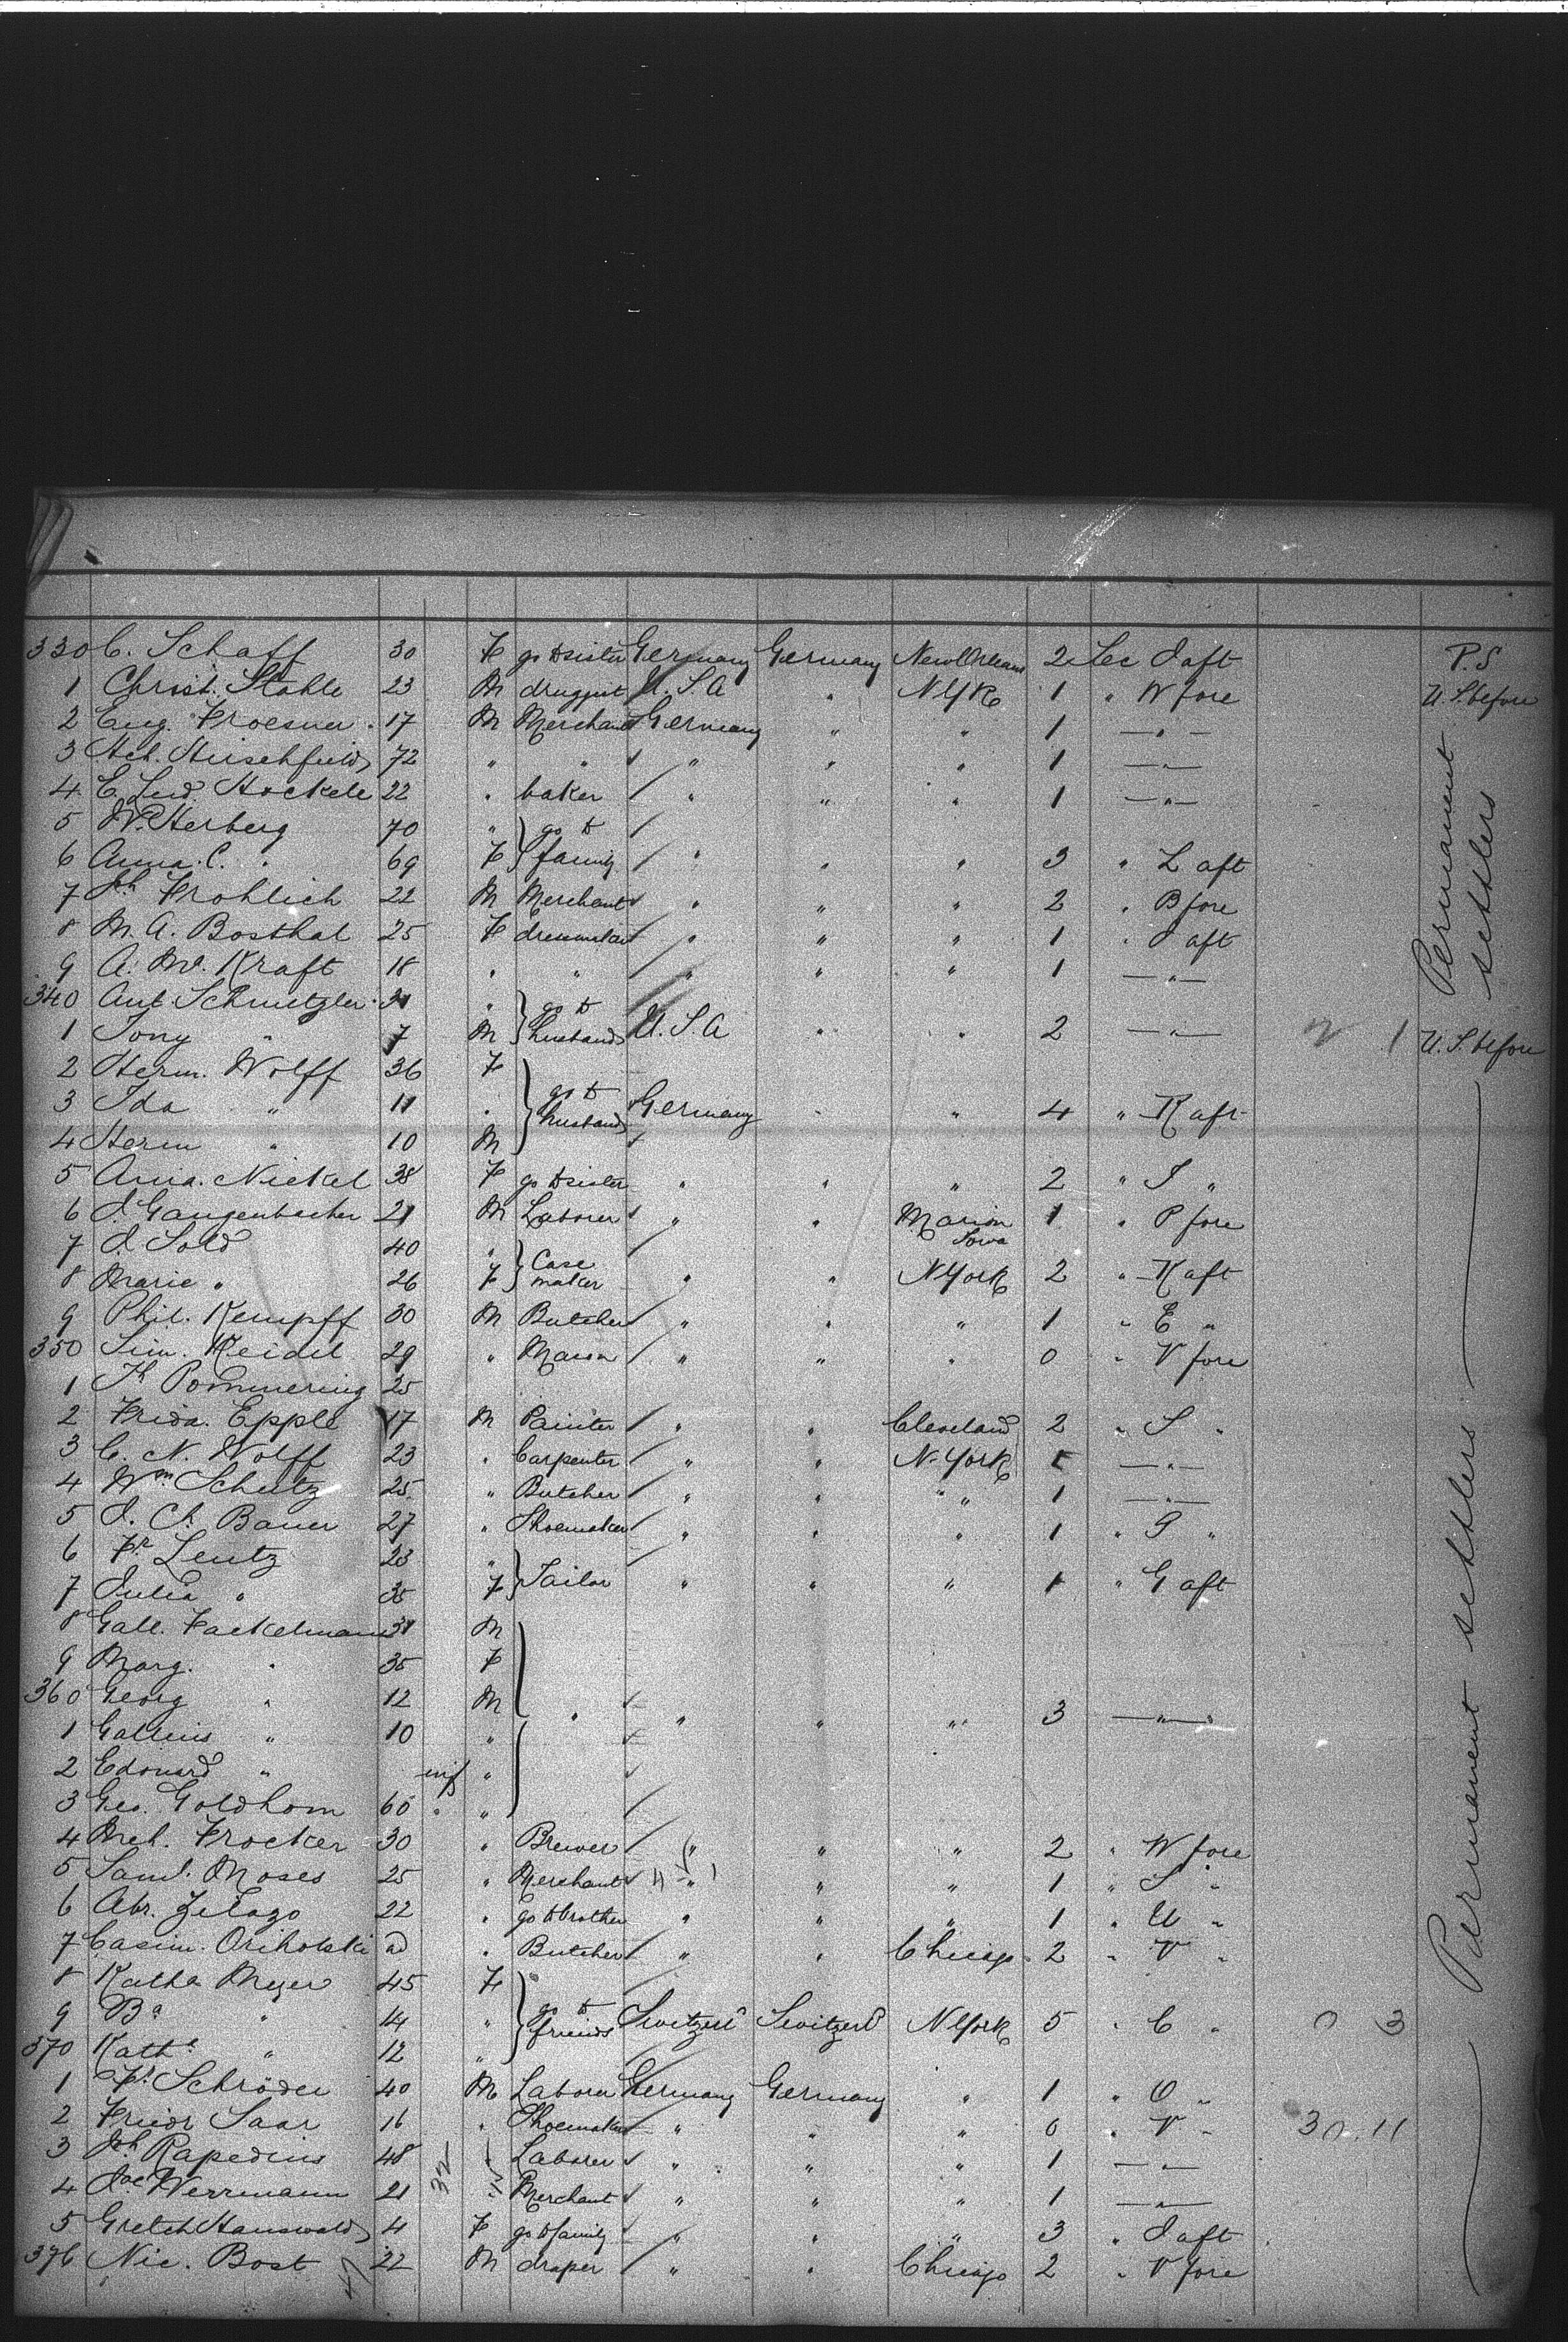 330 C. Schaff 30 F go to sister Germany Germany New Orleans 2 Sec J aft P.S
1 Christ. Stahle 23 M druggist U.S.A " N.York 1 " W fore U.S. before
2 Eug. Froesner 17 M Merchant Germany " " 1 — " —
3 Hch. Hirschfield 72 " " " " " 1 — " —
4 C. Lud. Hockele 22 " baker " " " 1 — " —
5 W. Herberg 70 " go to
6 Anna C. " 69 F family " " " 3 " L aft
7 Jh Frohlich 22 M Merchant " " " 2 " B fore
8 M. A. Bosthal 25 F dressmaker " " " 1 " J aft
9 A. Ma. Kraft 18 " " " " " 1 — " —
340 Ant. Schmetzler 31 " go to
1 Tony " 7 M husband U.S.A " " 2 — " — 1 U.S. before
2 Herm. Wolff 36 F
3 Ida " 11 " go to husband Germany " " 4 " K aft
4 Herm " 10 M
5 Anna. Nickel 38 F go to sister " " " 2 " J "
6 J. Gangenbacher 21 M Laborer " " Marion Iowa 1 " P fore
7 J. Sold 40 " Case
8 Marie " 26 F maker " " N York 2 " K aft
9 Phil. Kempff 30 M Butcher " " " 1 " E "
350 Sim. Keidel 29 " Mason " " " 0 " V fore
1 Jh Pommering 25
2 Frida. Epple 17 M Painter " " Cleveland 2 " S "
3 C. N. Wolff 23 " Carpenter " " N-York 1 — " —
4 Wm. Schutz 25 " Butcher " " " " 1 — " —
5 J. Ch. Bauer 27 " Shoemaker " " " 1 " P "
6 Fr. Lentz 23 "
7 Julia " 35 F Tailor " " " 1 " G aft
8 Gall. Fackelmann 31 M
9 Marg. " 35 F
360 Georg " 12 M " " " " 3 — " —
1 Gallus " 10 "
2 Edouard " inf "
3 Geo. Goldhorn 60 " "
4 Mch. Frocker 30 " Brewer " " " 2 " W fore
5 Saml. Moses 25 " Merchant " " " 1 " S "
6 Abr. Zelazo 22 " go to brother " " " 1 " U "
7 Casim. Oriholski ad " Butcher " " Chicago 2 " V "
8 Katha Meyer 45 F
9 Ba " 14 " go to friends Switzerld Switzerld N York 5 " C " 0 3
370 Katha " 12 "
1 Fr. Schröder 40 M Laborer Germany Germany " 1 " O "
2 Friedr Saar 16 " Shoemaker " " " 0 " V " 30.11
3 Jh Rapedius 48 " Laborer " " " 1 — " —
4 Jac Werrmann 21 32 " Merchant " " " 1 — " —
5 Gretch Hauswald 4 F go to family " " " 3 " J aft
376 Nic. Bost 22 M draper " " Chicago 2 " V fore
47
Permanent settlers
Permanent settlers